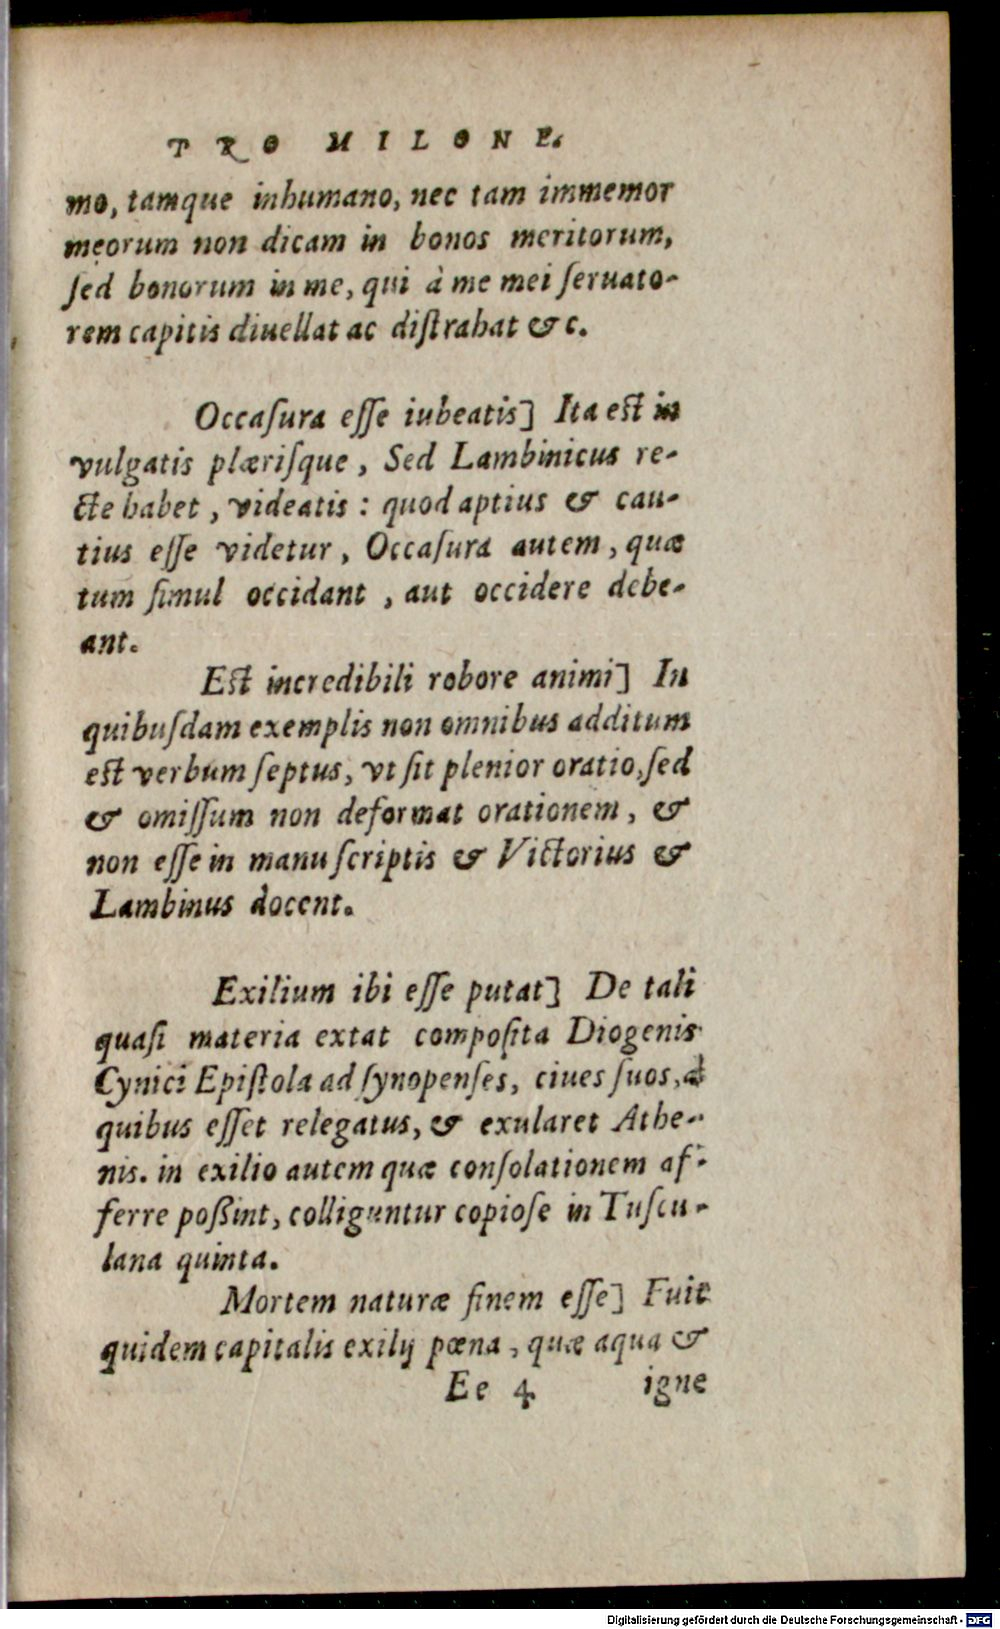 PRO MILONE.
mo, tamque inhumano, nec tam immemor
meorum non dicam in bonos meritorum,
ſed bonorum in me, qui à me mei ſeruato-
rem capitis diuellat ac diſtrahat &c.
Occaſura eſſe iubeatis] Ita eſt in
vulgatis plæriſque, Sed Lambinicus re-
cte habet, videatis: quod aptius & cau-
tius eſſe videtur, Occaſura autem, quæ
tum ſimul occidant, aut occidere debe-
ant.
Eſt incredibili robore animi] In
quibuſdam exemplis non omnibus additum
eſt verbum ſeptus, vt ſit plenior oratio, ſed
& omiſſum non deformat orationem, &
non eſſe in manuſcriptis & Victorius &
Lambinus docent.
Exilium ibi eſſe putat] De tali
quaſi materia extat compoſita Diogenis
Cynici Epiſtola ad ſynopenſes, ciues ſuos, a
quibus eſſet relegatus, & exularet Athe-
nis. in exilio autem quæ conſolationem af-
ferre poßint, colliguntur copioſe in Tuſcu-
lana quinta.
Mortem naturæ finem eſſe] Fuit
quidem capitalis exilij pœna, quæ aqua &
Ee 4 igne
Digitalisierung gefördert durch die Deutsche Forschungsgemeinschaft - DFG